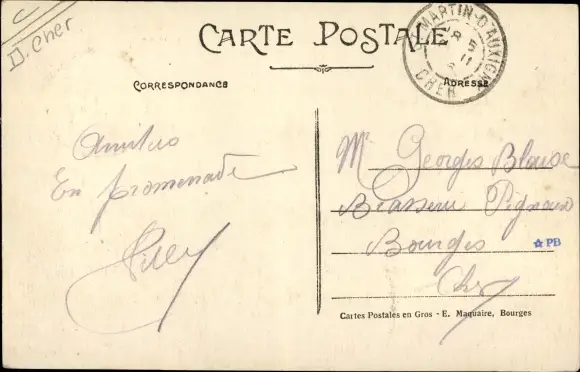 C
D. Cher
CARTE POSTALE
MARTIN-D'AUXIGNY
5
11
CHER
CORRESPONDANCE
ADRESSE
En promenade
Mr Georges Blaise
Brasserie Pignoux
Bourges
Cher
☆ PB
Cartes Postales en Gros - E. Maquaire, Bourges